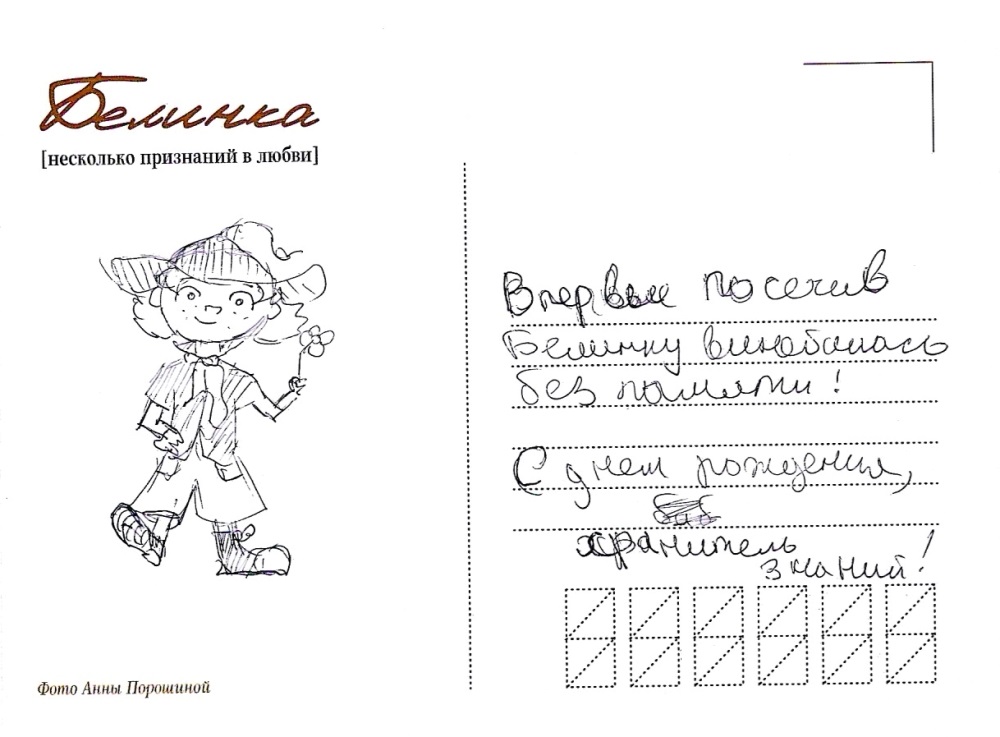 Белинка
[несколько признаний в любви]
Впервые посетив
Белинку влюбилась
без памяти!
С днем рождения,
хранитель
знаний!
Фото Анны Порошиной